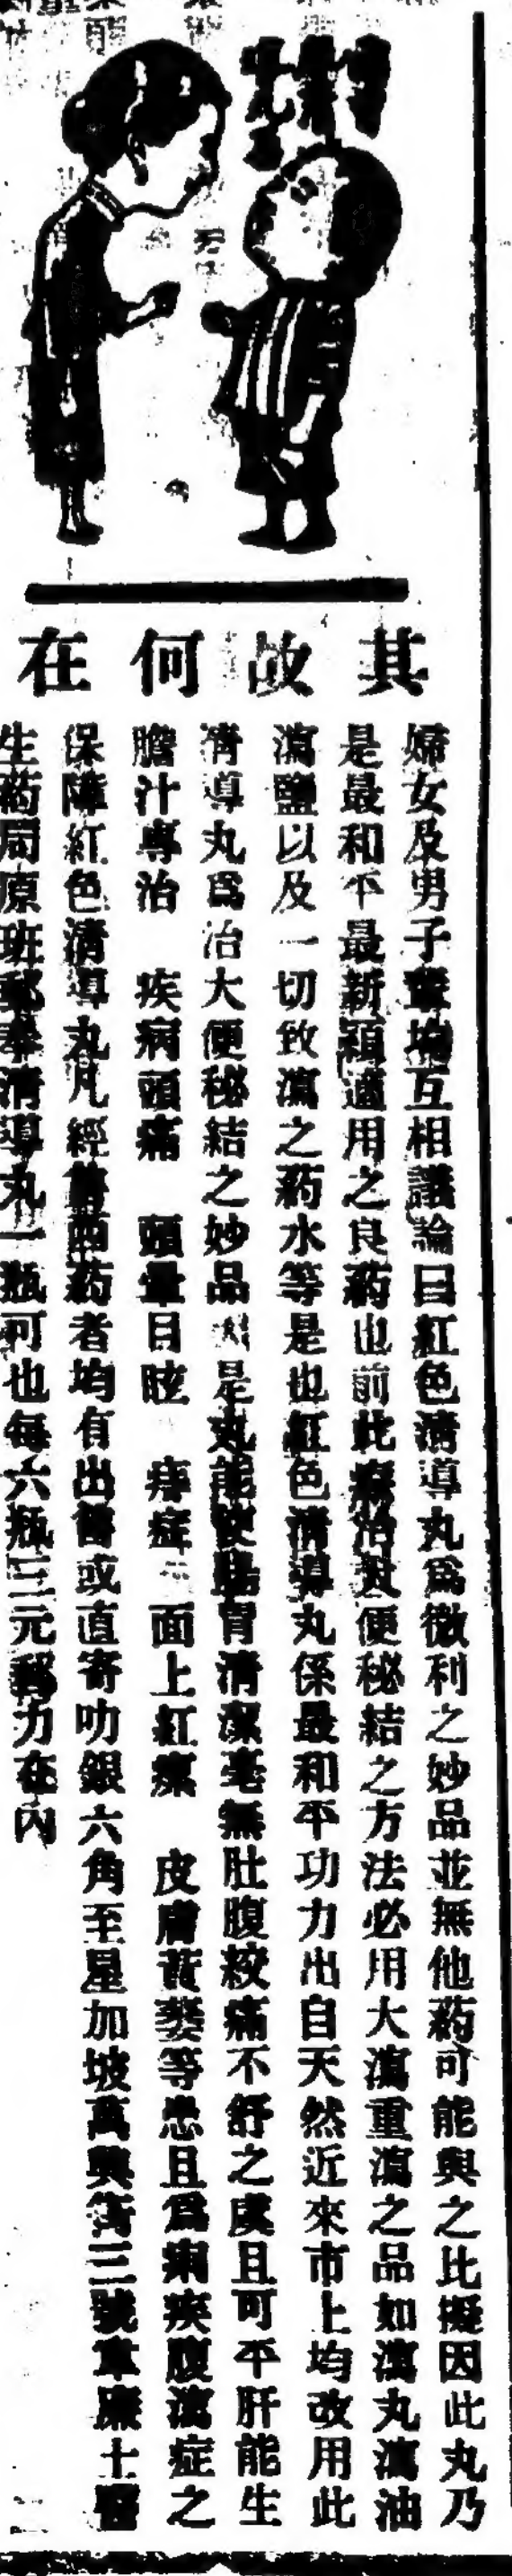 其故何在
婦女及男子輩均互相議論曰紅色清導丸為微利之妙品並無他药可能與之比擬因此丸乃
是最和平最新穎適用之良药也前此療治大便秘結之方法必用大瀉重瀉之品如瀉丸瀉油
瀉鹽以及一切致瀉之药水等是也紅色清導丸係最和平功力出自天然近來市上均改用此
清導丸為治大便秘結之妙品 是丸能使腸胃清潔毫無肚腹絞痛不舒之虞且可平肝能生
膽汁專治 疾病頭痛 頭暈目眩 痔症 面上紅瘰 皮膚黃萎等患且為痢疾腹瀉症之
保障紅色清導丸凡經售西药者均有出售或直寄叻銀六角至星加坡萬興街三號韋廉士醫
生药局原班郵奉清導丸一瓶可也每六瓶三元郵力在內